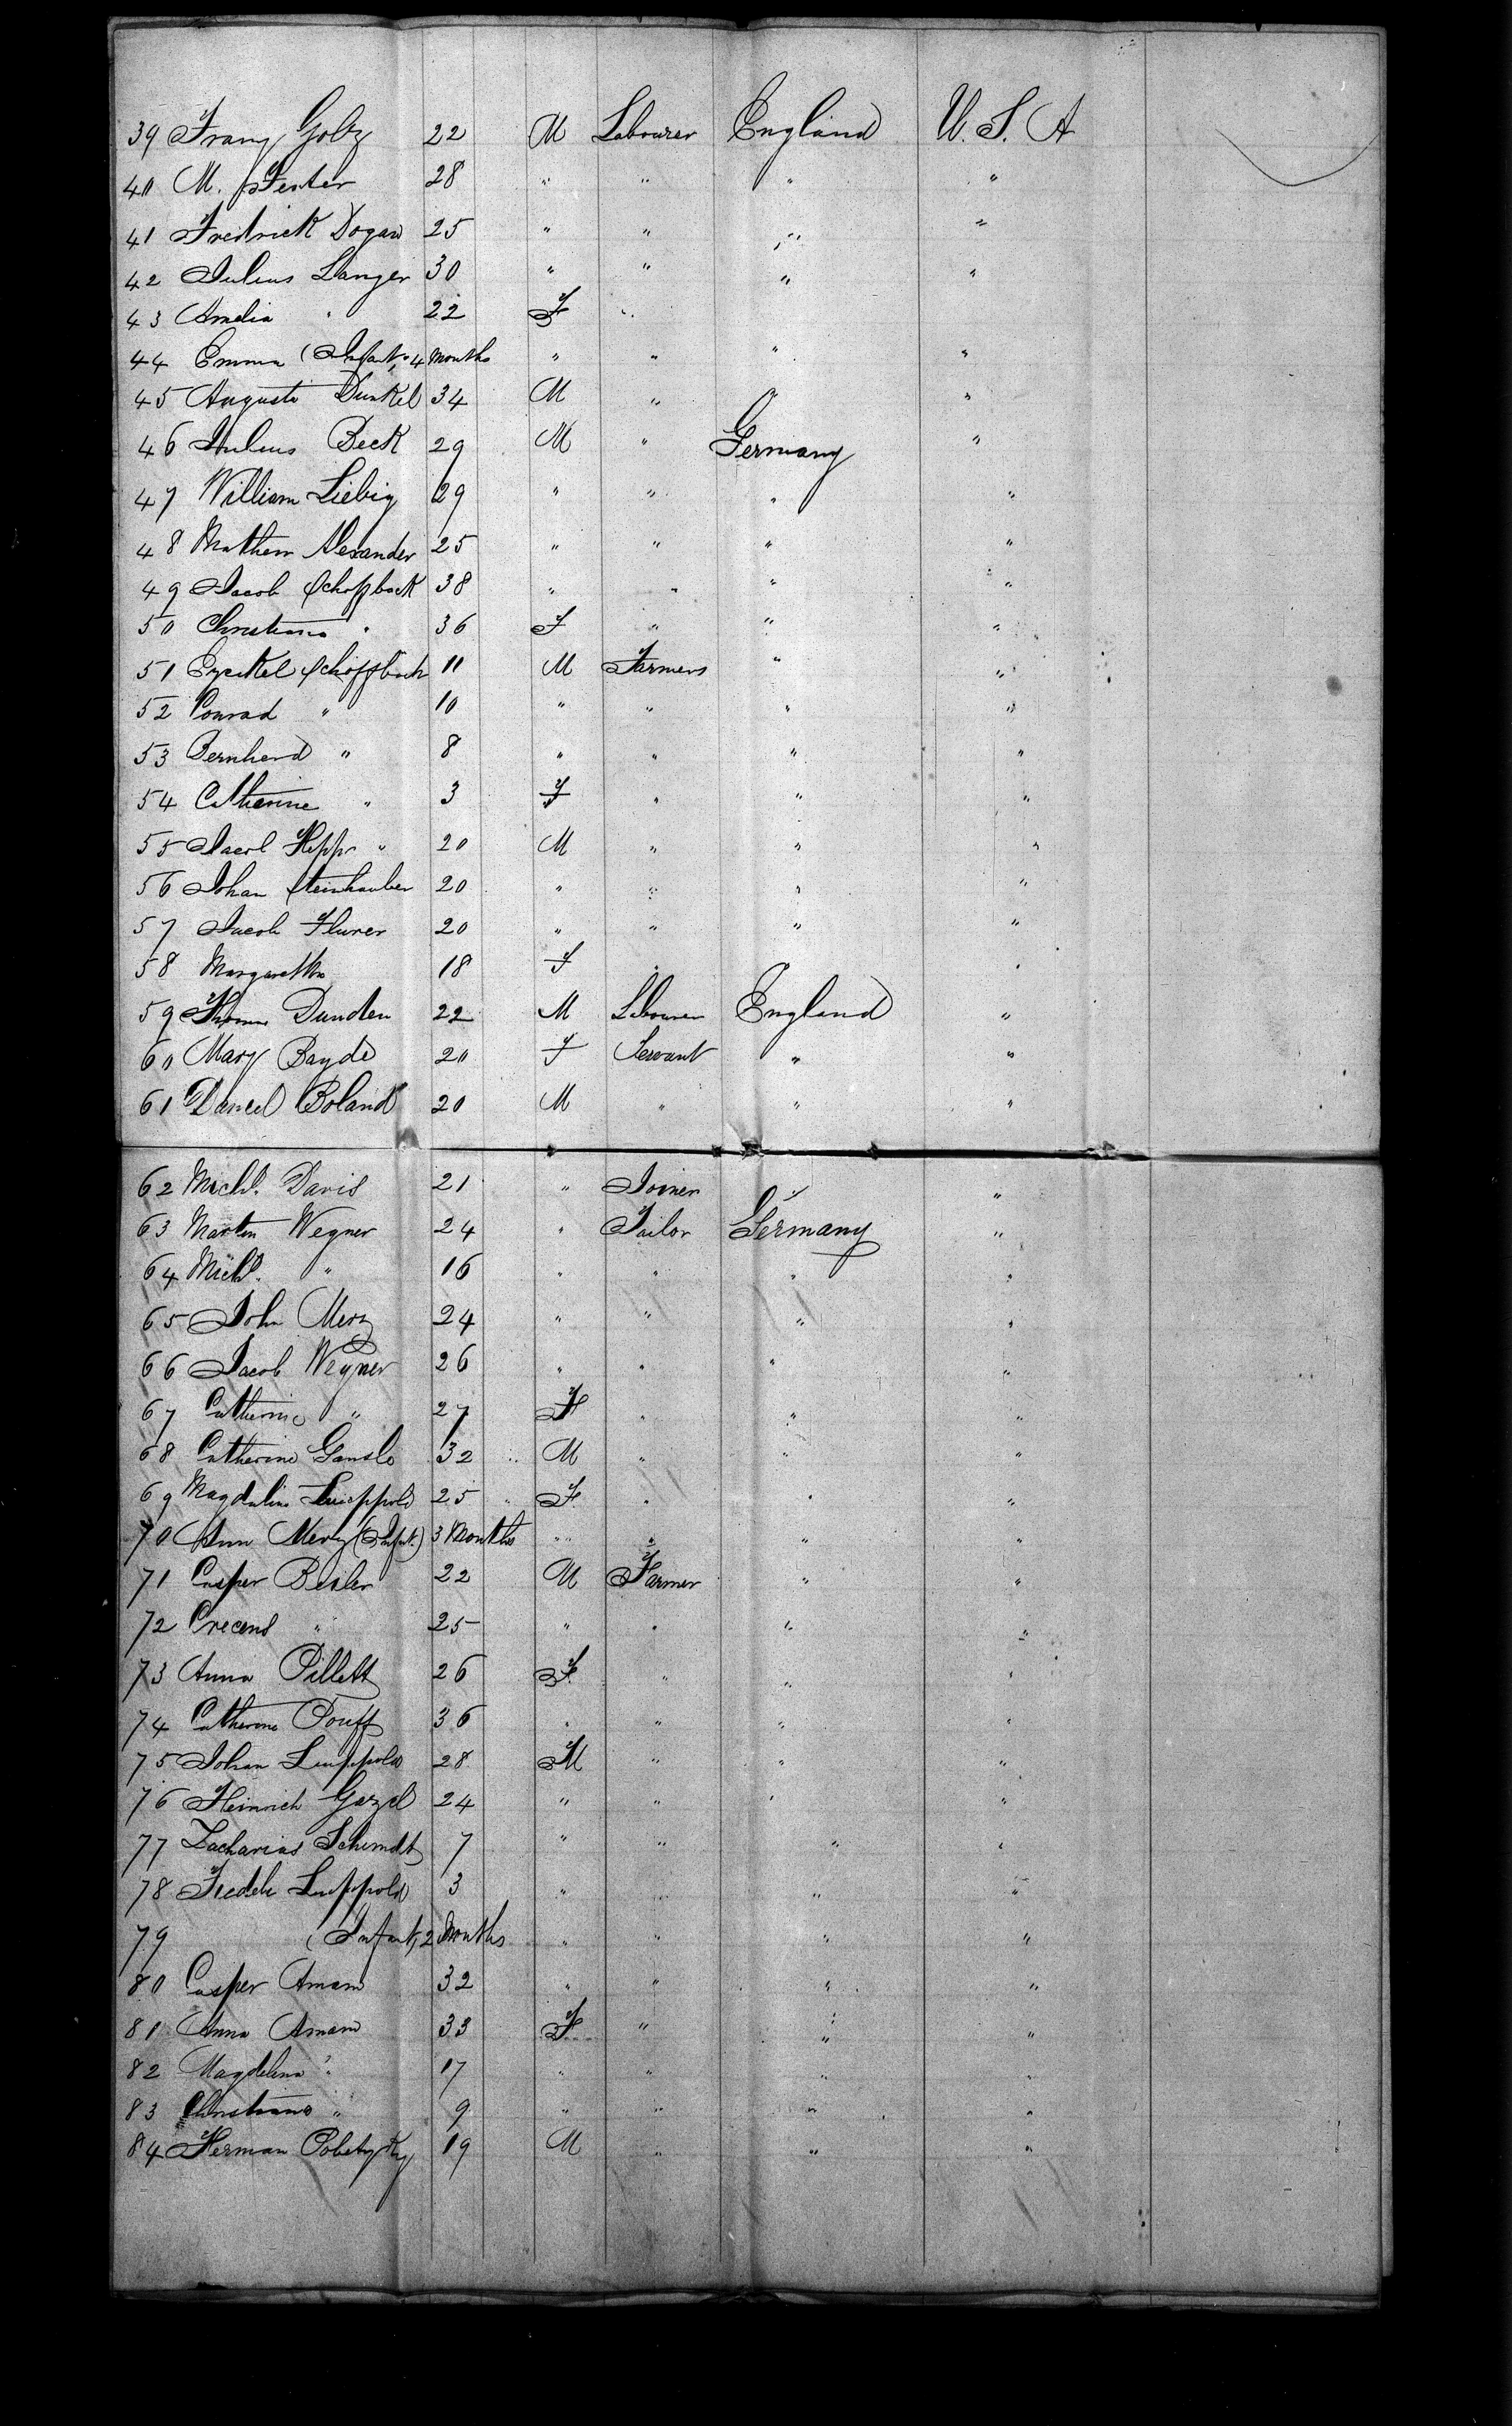 39 Franz Goltz 22 M Labourer England U. S. A
40 M. Fester 28 " " " "
41 Fredrick Dogan 25 " " " "
42 Julius Langer 30 " " " "
43 Amelia " 22 F "
44 Emma (Infant, 4 Months " " " "
45 Augusta Dunkel 34 M " " "
46 Julius Beck 29 M " Germany "
47 William Liebig 29 " " " "
48 Mathew Alexander 25 " " " "
49 Jacob Schopbach 38 " " " "
50 Christiana " 36 F " " "
51 Ezeckel Schoffbach 11 M Farmers " "
52 Conrad " 10 " " " "
53 Bernherd " 8 " " " "
54 Catherine " 3 F " " "
55 Jacob Hepp " 20 M " " "
56 Johan Steinhauber 20 " " " "
57 Jacob Flurer 20 " " " "
58 Margaretha 18 F " "
59 Thomas Dunden 22 M Labourer England "
60 Mary Bayde 20 F Servant " "
61 Daniel Boland 20 M " " "
62 Michl. Davis 21 " Joiner " "
63 Martin Wegner 24 " Tailor Germany "
64 Michl. " 16 " " " "
65 John Merz 24 " " " "
66 Jacob Wegner 26 " " " "
67 Catherine " 27 F " " "
68 Catherine Gansle 32 M " " "
69 Magdalina Luippold 25 " F " " "
70 Ann Merz (Infant.) 3 Months " " " "
71 Casper Besler 22 M Farmer " "
72 Crecens " 25 " " " "
73 Anna Pillett 26 F " " "
74 Catherine Pouff 36 " " " "
75 Johan Luippold 28 M " " "
76 Heinrich Gazel 24 " " " "
77 Zacharias Schemdt 7 " " " "
78 Fredele Luppold 3 " " " "
79 (Infant, 2 Months " " " "
80 Casper Amann 32 " " " "
81 Anna Amann 33 F " " "
82 Magdelena " 17 " " " "
83 Christiana " 9 " " " "
84 Herman 19 M " " "